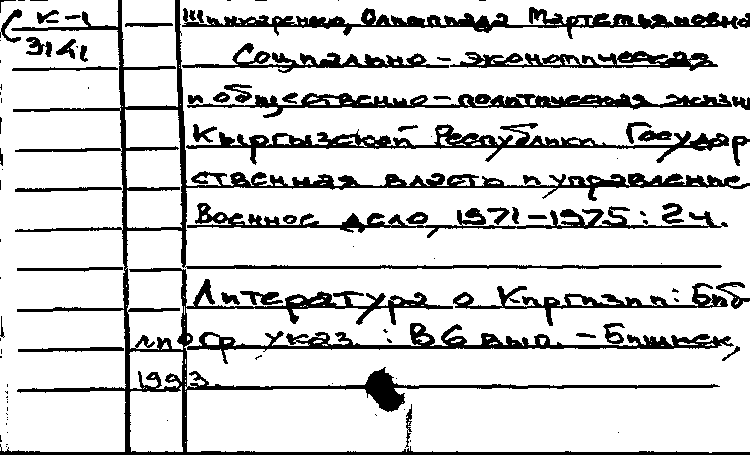 К-1
3141
Шинкаренко, Олимпиада Мартемьяновна
Социально-экономическая
и общественно-политическая жизнь
Кыргызской Республики. Государ-
ственная власть и управление
Военное дело, 1971-1975: 2ч.
Литература о Киргизии: Биб-
лиогр. указ. : В 6 вып. - Бишкек,
1993.